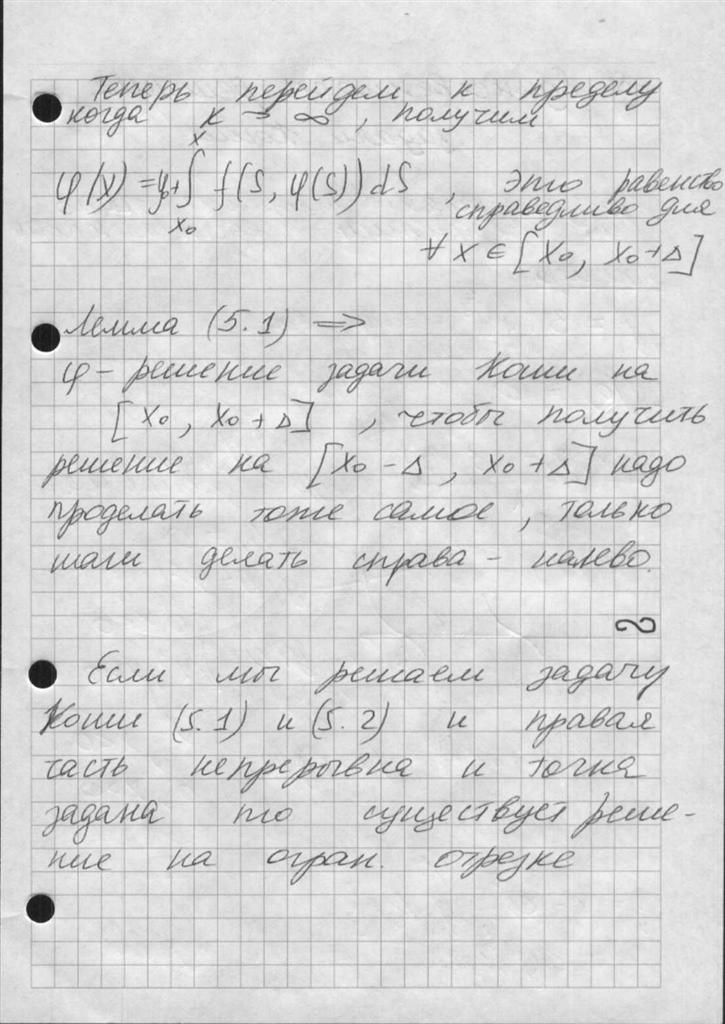 Теперь перейдем к пределу
когда k → ∞, получим
φ(x) = y₀ + ∫ₓ₀ˣ f(s, φ(s)) ds, это равенство
справедливо для
∀ x ∈ [x₀, x₀+Δ]
Лемма (5.1) ⟹
φ – решение задачи Коши на
[x₀, x₀+Δ], чтобы получить
решение на [x₀-Δ, x₀+Δ] надо
проделать тоже самое, только
шаги делать справа – налево.
Если мы решаем задачу
Коши (5.1) и (5.2) и правая
часть непрерывна и точка
задана то существует реше-
ние на огран. отрезке